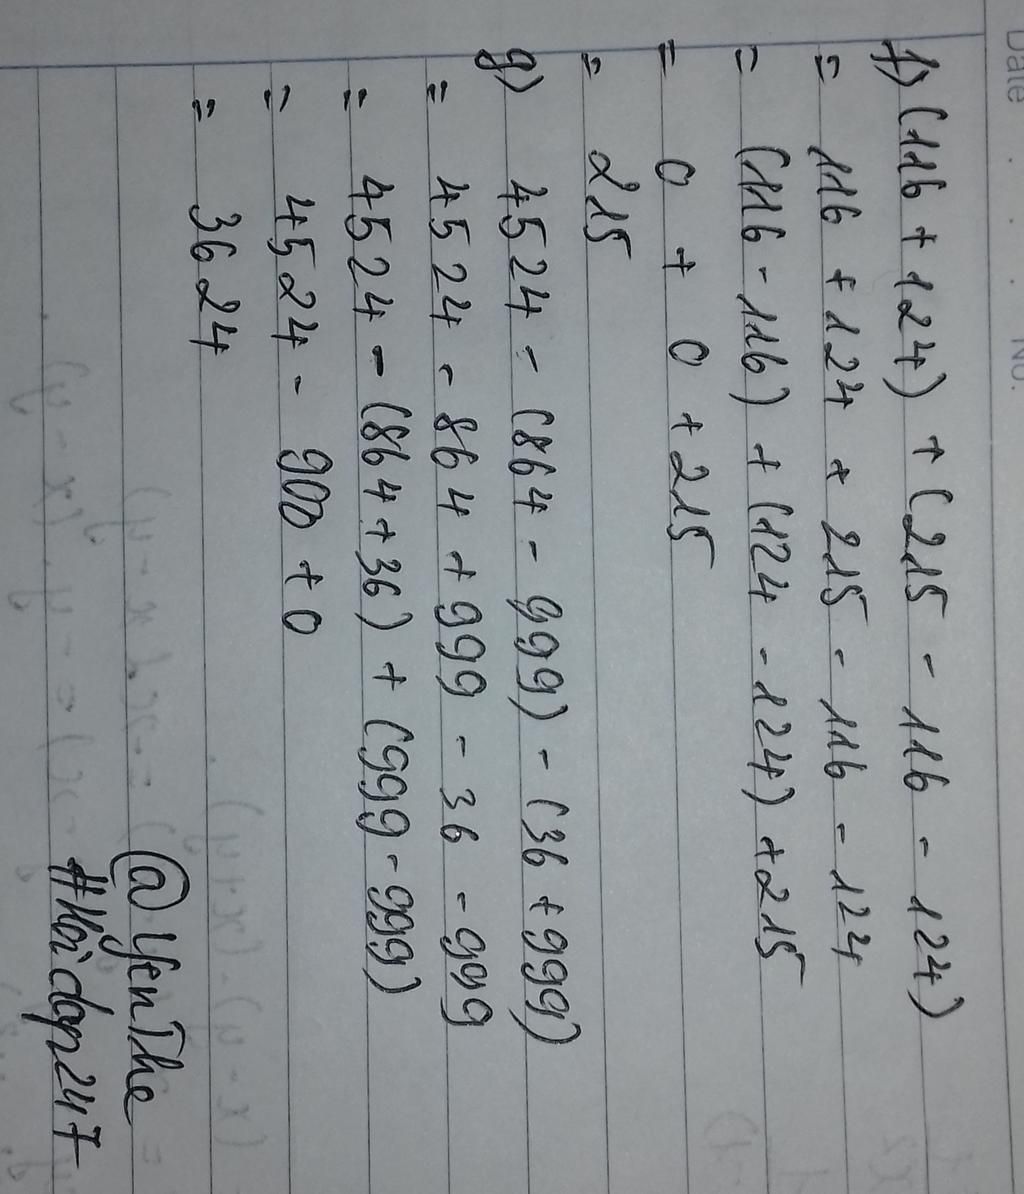 Date
No.
f) (116 + 124) + (215 - 116 - 124)
= 116 + 124 + 215 - 116 - 124
= (116 - 116) + (124 - 124) + 215
= 0 + 0 + 215
= 215
g) 4524 - (864 - 999) - (36 + 999)
= 4524 - 864 + 999 - 36 - 999
= 4524 - (864 + 36) + (999 - 999)
= 4524 - 900 + 0
= 3624
@YenThe
#Hoidap247